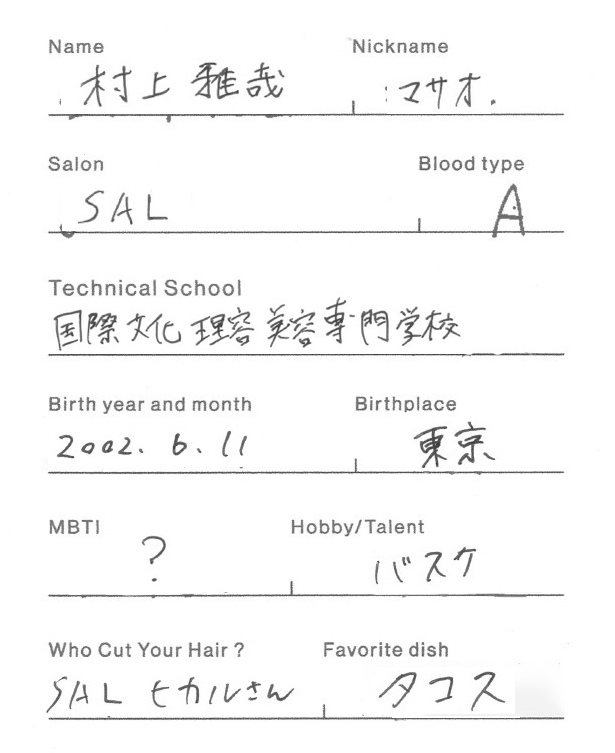 Name Nickname
村上 雅哉 マサオ.
Salon Blood type
SAL A
Technical School
国際文化理容美容専門学校
Birth year and month Birthplace
2002. 6. 11 東京
MBTI Hobby/Talent
? バスケ
Who Cut Your Hair ? Favorite dish
SAL ヒカルさん タコス